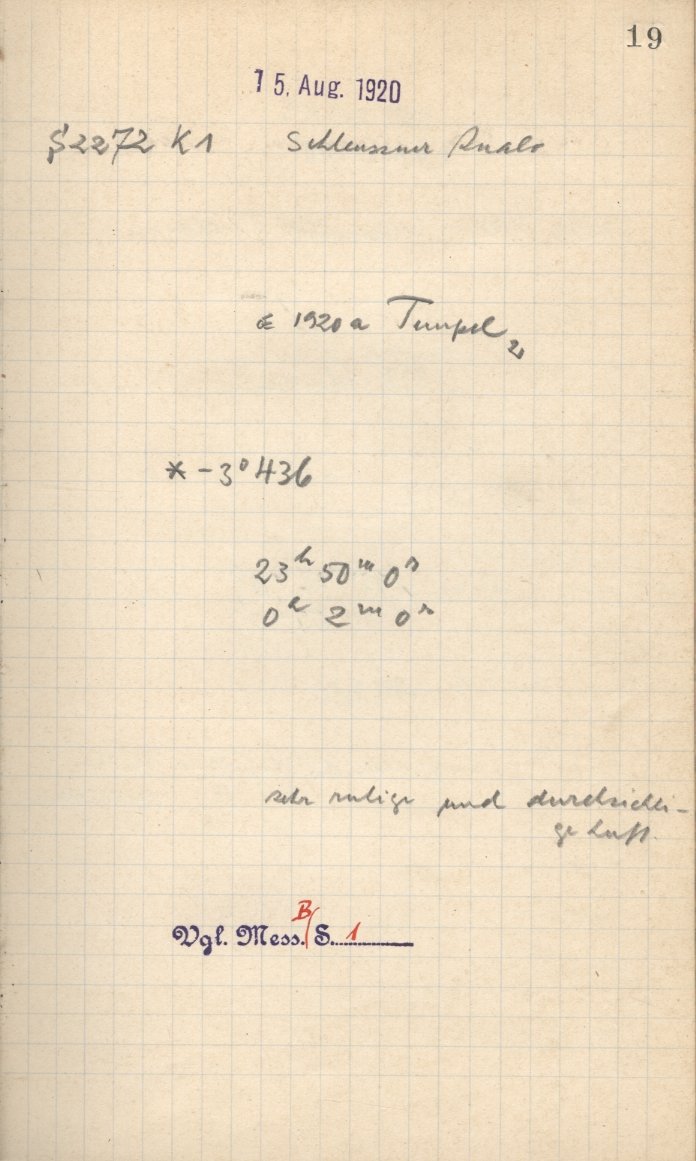 19
15. Aug. 1920
S2272 K1 Schleussner
1920a Tempel₂
* -3° 436
23ʰ 50ᵐ 0ˢ
0ʰ 2ᵐ 0ˢ
sehr ruhige und durchsichti-
ge Luft.
Vgl. Mess. B S. 1